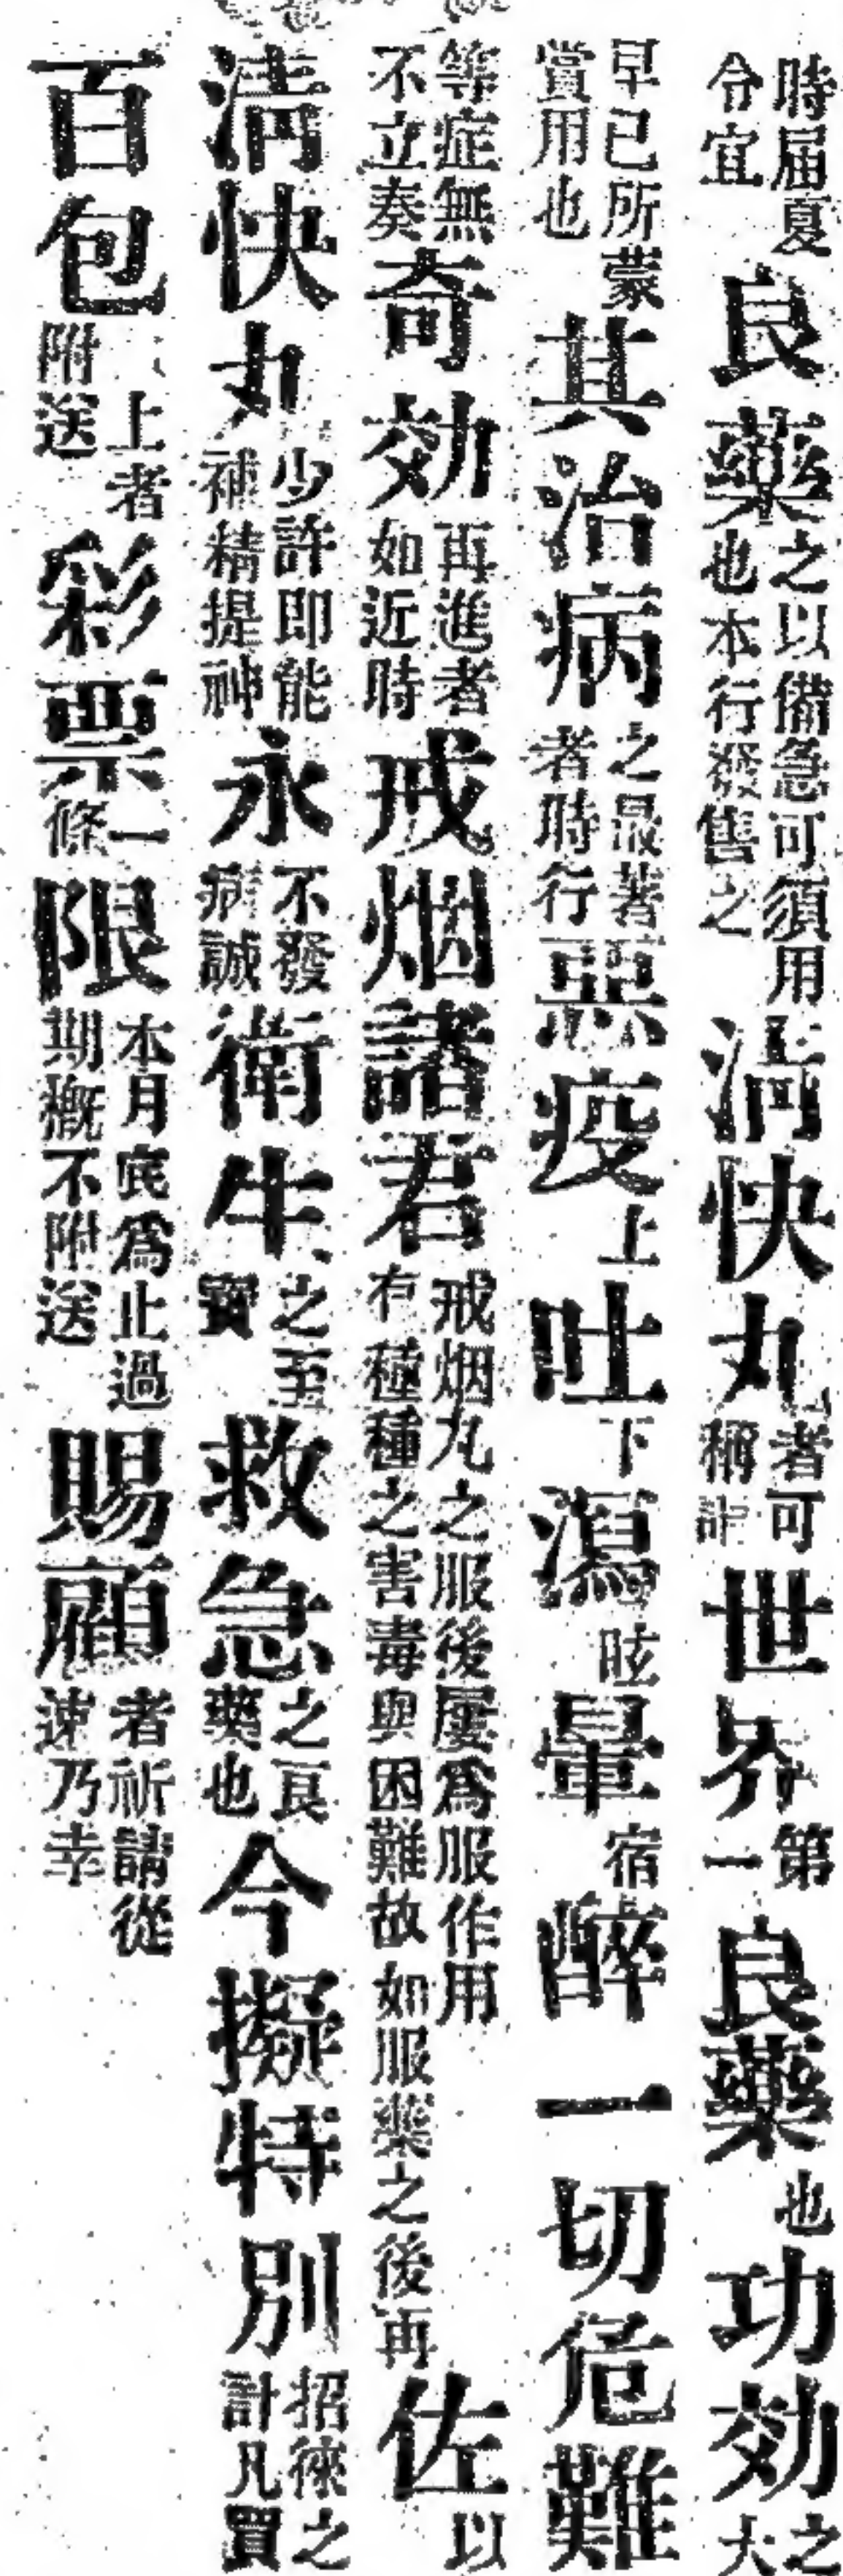 時届夏令宜良藥之以備急可須用也本行發售之淸快丸者可稱計世界第一良藥也功効之大
早已所蒙賞用也其治病之最著者時行惡疫上吐下瀉眩暈宿醉一切危難
等症無不立奏奇効再進者如近時戒烟諸君戒烟丸之服後屢爲服作用有種種之害毒與困難故如服藥之後再佐以
淸快丸少許即能補精提神永不發病誠衛生之至寳救急之良藥也今擬特別招徠之計凡買
百包上者附送彩票一條限本月底爲止過期概不附送賜顧者祈請從速乃幸